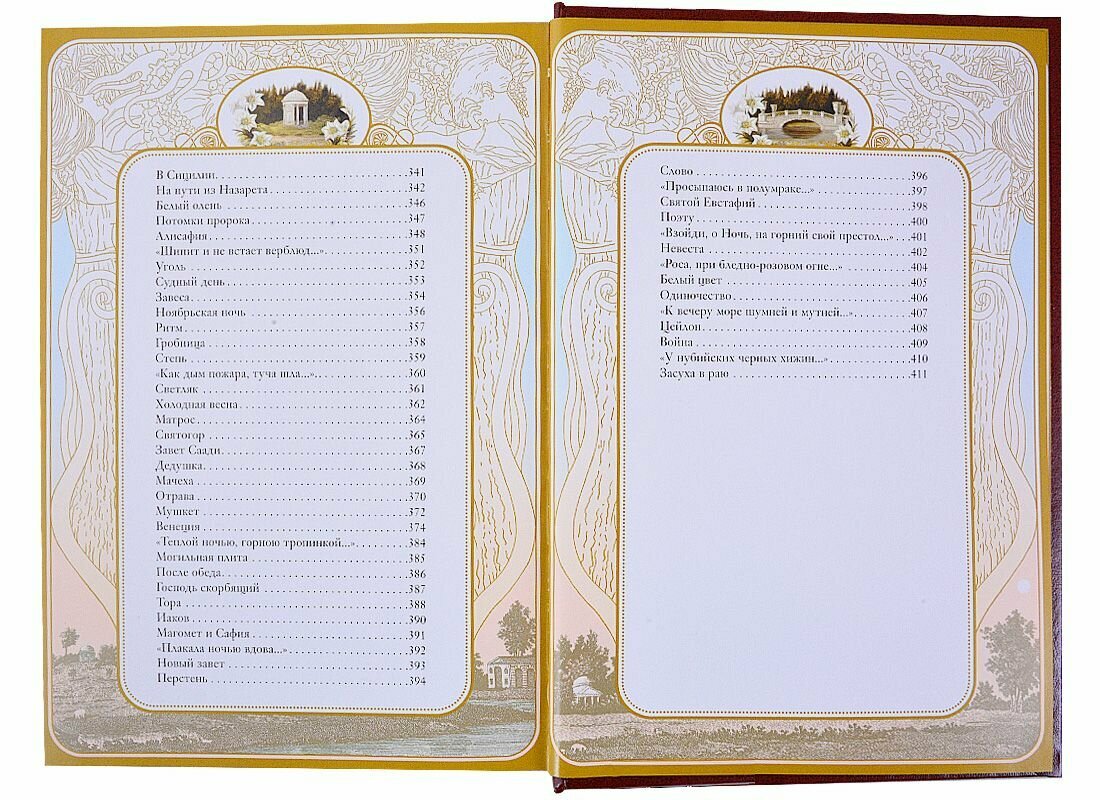 В Сицилии. . . . . . . . . . . . . . . . . . . . . . . . . . . . 341
На пути из Назарета . . . . . . . . . . . . . . . . . . . . 342
Белый олень . . . . . . . . . . . . . . . . . . . . . . . . . . 346
Потомки пророка . . . . . . . . . . . . . . . . . . . . . . 347
Алисафия . . . . . . . . . . . . . . . . . . . . . . . . . . . . 348
«Шипит и не встает верблюд...». . . . . . . . . . . . 351
Уголь . . . . . . . . . . . . . . . . . . . . . . . . . . . . . . . 352
Судный день . . . . . . . . . . . . . . . . . . . . . . . . . . 353
Завеса. . . . . . . . . . . . . . . . . . . . . . . . . . . . . . . 354
Ноябрьская ночь . . . . . . . . . . . . . . . . . . . . . . . 356
Ритм. . . . . . . . . . . . . . . . . . . . . . . . . . . . . . . . 357
Гробница . . . . . . . . . . . . . . . . . . . . . . . . . . . . 358
Степь . . . . . . . . . . . . . . . . . . . . . . . . . . . . . . . 359
«Как дым пожара, туча шла...». . . . . . . . . . . . . 360
Светляк . . . . . . . . . . . . . . . . . . . . . . . . . . . . . 361
Холодная весна. . . . . . . . . . . . . . . . . . . . . . . . 362
Матрос. . . . . . . . . . . . . . . . . . . . . . . . . . . . . . 364
Святогор . . . . . . . . . . . . . . . . . . . . . . . . . . . . 365
Завет Саади. . . . . . . . . . . . . . . . . . . . . . . . . . . 367
Дедушка. . . . . . . . . . . . . . . . . . . . . . . . . . . . . 368
Мачеха . . . . . . . . . . . . . . . . . . . . . . . . . . . . . . 369
Отрава . . . . . . . . . . . . . . . . . . . . . . . . . . . . . . 370
Мушкет . . . . . . . . . . . . . . . . . . . . . . . . . . . . . 372
Венеция . . . . . . . . . . . . . . . . . . . . . . . . . . . . . 374
«Теплой ночью, горною тропинкой...». . . . . . . . 384
Могильная плита . . . . . . . . . . . . . . . . . . . . . . . 385
После обеда. . . . . . . . . . . . . . . . . . . . . . . . . . . 386
Господь скорбящий . . . . . . . . . . . . . . . . . . . . . 387
Тора . . . . . . . . . . . . . . . . . . . . . . . . . . . . . . . . 388
Иаков . . . . . . . . . . . . . . . . . . . . . . . . . . . . . . . 390
Магомет и Сафия . . . . . . . . . . . . . . . . . . . . . . . 391
«Плакала ночью вдова...». . . . . . . . . . . . . . . . . 392
Новый завет . . . . . . . . . . . . . . . . . . . . . . . . . . 393
Перстень . . . . . . . . . . . . . . . . . . . . . . . . . . . . 394
Слово . . . . . . . . . . . . . . . . . . . . . . . . . . . . . . . 396
«Просыпаюсь в полумраке...» . . . . . . . . . . . . . . 397
Святой Евстафий . . . . . . . . . . . . . . . . . . . . . . . 398
Поэту . . . . . . . . . . . . . . . . . . . . . . . . . . . . . . . 400
«Взойди, о Ночь, на горний свой престол...». . . 401
Невеста . . . . . . . . . . . . . . . . . . . . . . . . . . . . . 402
«Роса, при бледно-розовом огне...» . . . . . . . . . 404
Белый цвет . . . . . . . . . . . . . . . . . . . . . . . . . . . 405
Одиночество. . . . . . . . . . . . . . . . . . . . . . . . . . 406
«К вечеру море шумней и мутней...». . . . . . . . . 407
Цейлон. . . . . . . . . . . . . . . . . . . . . . . . . . . . . . 408
Война . . . . . . . . . . . . . . . . . . . . . . . . . . . . . . . 409
«У нубийских черных хижин...». . . . . . . . . . . . . 410
Засуха в раю . . . . . . . . . . . . . . . . . . . . . . . . . . 411